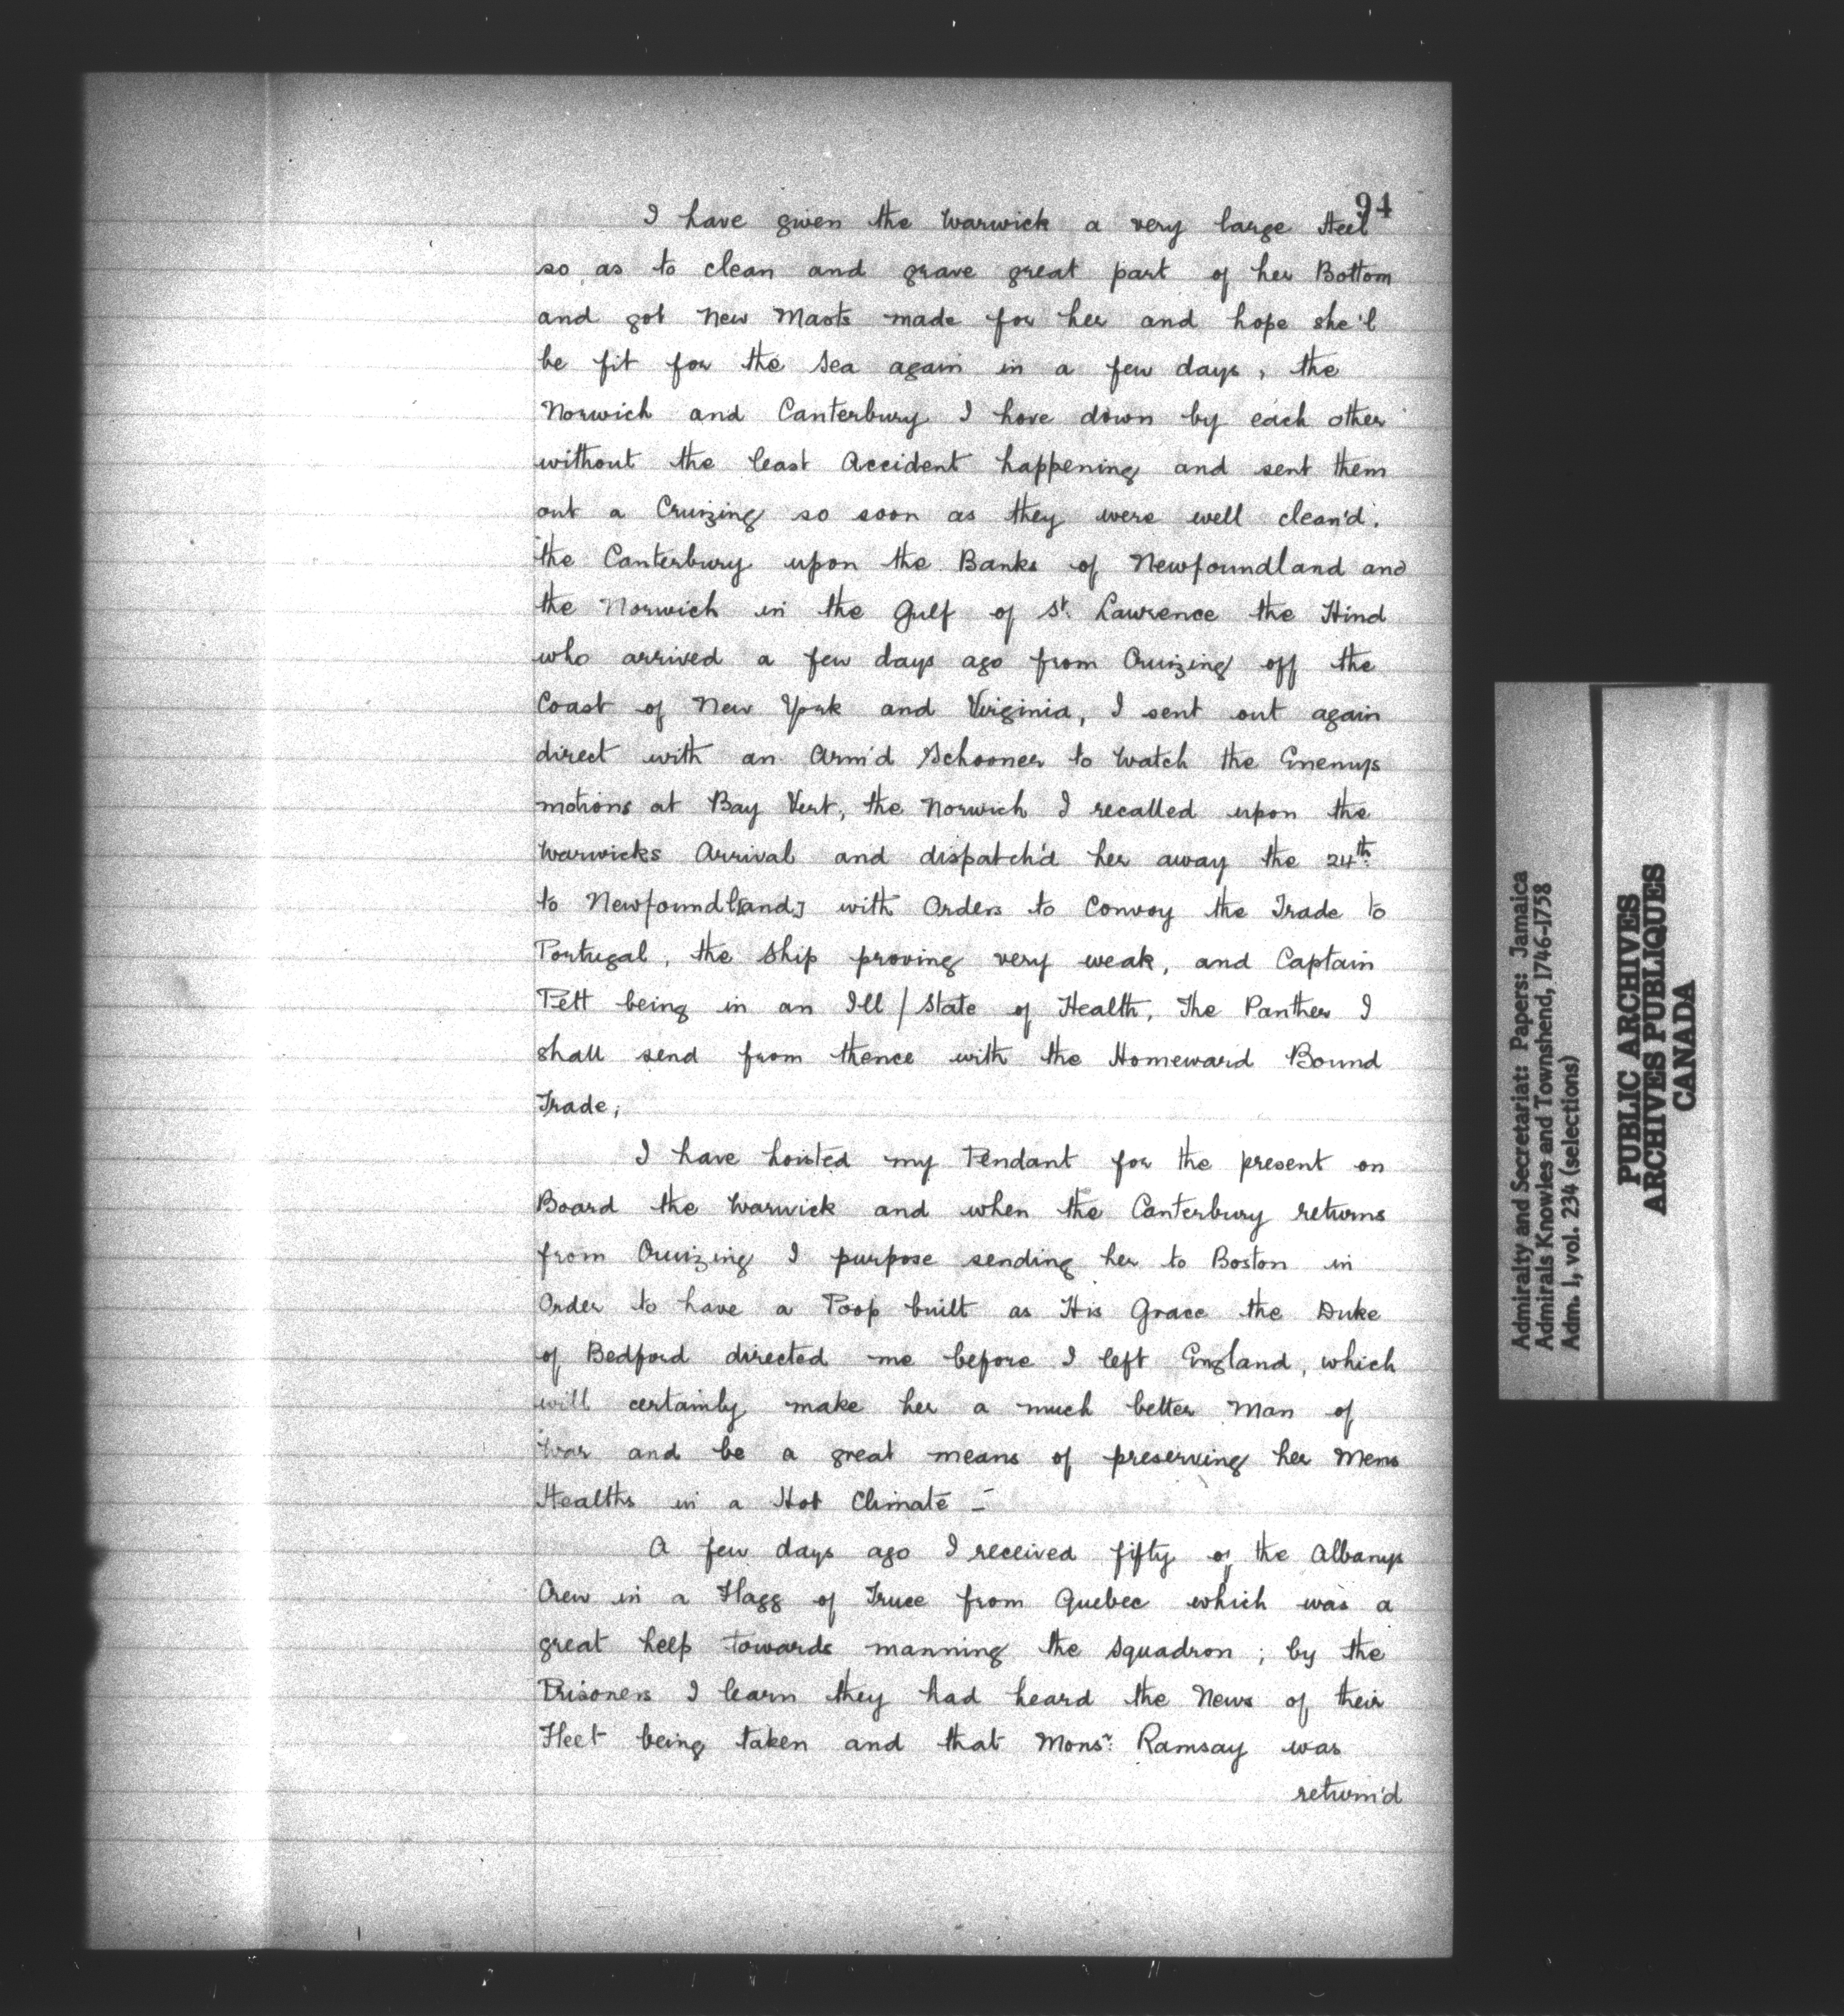 94
I have given the Warwick a very large Heel
so as to clean and grave great part of her Bottom
and got New Masts made for her and hope she'l
be fit for the Sea again in a few days, the
Norwich and Canterbury I hove down by each other
without the least Accident happening and sent them
out a Cruizing so soon as they were well clean'd.
the Canterbury upon the Banks of Newfoundland and
the Norwich in the Gulf of St. Lawrence the Hind
who arrived a few days ago from Cruizing off the
Coast of New York and Virginia, I sent out again
direct with an Arm'd Schooner to Watch the Enemys
motions at Bay Vert, the Norwich I recalled upon the
Warwicks Arrival and dispatch'd her away the 24th.
to Newfoundl[and] with Orders to Convoy the Trade to
Portugal, the Ship proving very weak, and Captain
Pett being in an Ill / State of Health, The Panther I
shall send from thence with the Homeward Bound
Trade;
I have hoisted my Pendant for the present on
Board the Warwick and when the Canterbury returns
from Cruizing I purpose sending her to Boston in
Order to have a Poop built as His Grace the Duke
of Bedford directed me before I left England, which
will certainly make her a much better Man of
War and be a great means of preserving her Mens
Healths in a Hot Climate –
A few days ago I received fifty of the Albanys
Crew in a Flagg of Truce from Quebec which was a
great help towards manning the Squadron; by the
Prisoners I learn they had heard the News of their
Fleet being taken and that Monsr: Ramsay was
return'd
Admiralty and Secretariat: Papers: Jamaica
Admirals Knowles and Townshend, 1746-1758
Adm. 1, vol. 234 (selections)
PUBLIC ARCHIVES
ARCHIVES PUBLIQUES
CANADA